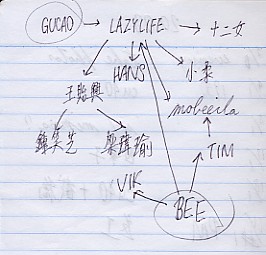 GUCAO LAZYLIFE 十二女
HANS
王貽興
mobeeila
梁瑋瑜
TIM
VIK
BEE